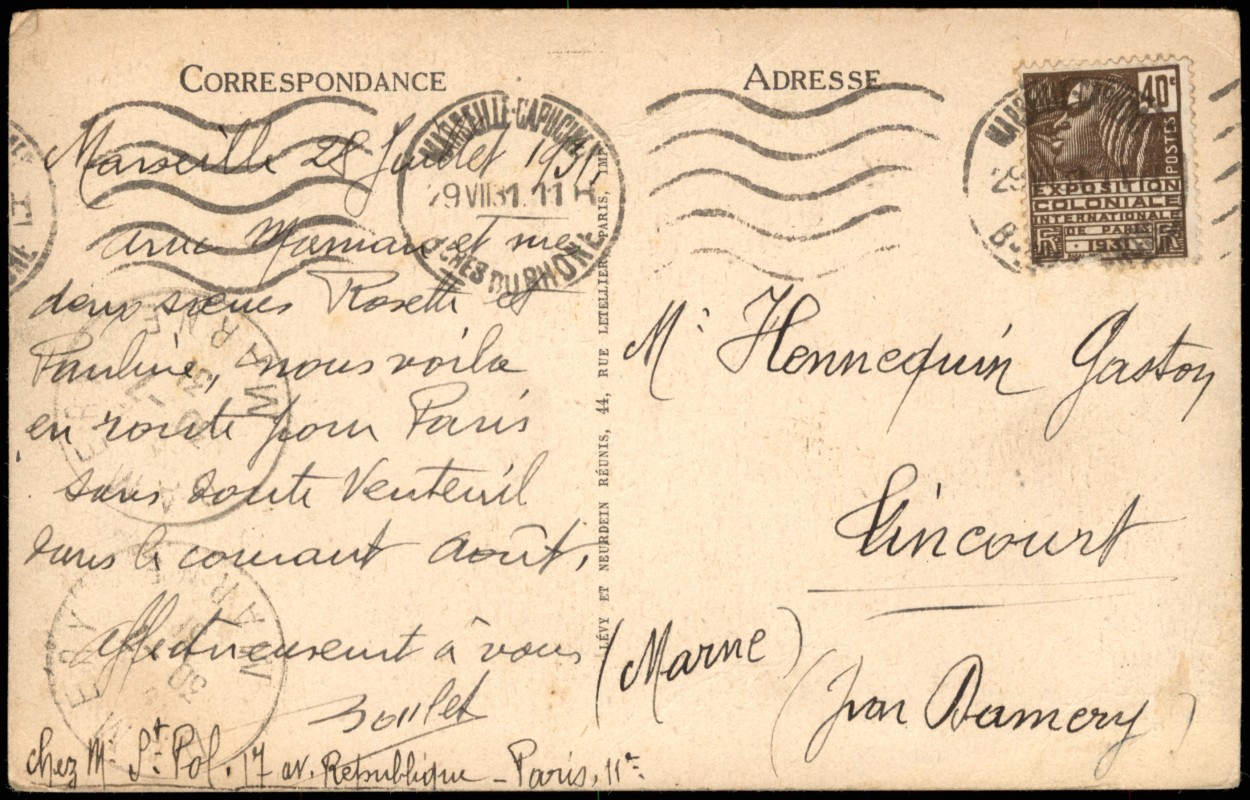 CORRESPONDANCE
Marseille 28 Juillet 1931,
avec Maman et mes
deux sœurs Rosette et
Pauline, nous voila
en route pour Paris
sans doute Venteuil
dans le courant Août,
Affectueusement à vous
Soulet
chez M. St Pol. 17 av. République - Paris, 11e.
LÉVY ET NEURDEIN RÉUNIS, 44, RUE LETELLIER, PARIS, IMP.
MARSEILLE-CAPUCINES
29 VII 31. 11 H
BCHES DU RHONE
ADRESSE
40c
POSTES
EXPOSITION
COLONIALE
INTERNATIONALE
DE PARIS
1931
Mr Hennequin Gaston
(Marne)
(par Damery)
DAMERY
MARNE
30
DAMERY
MARNE
30